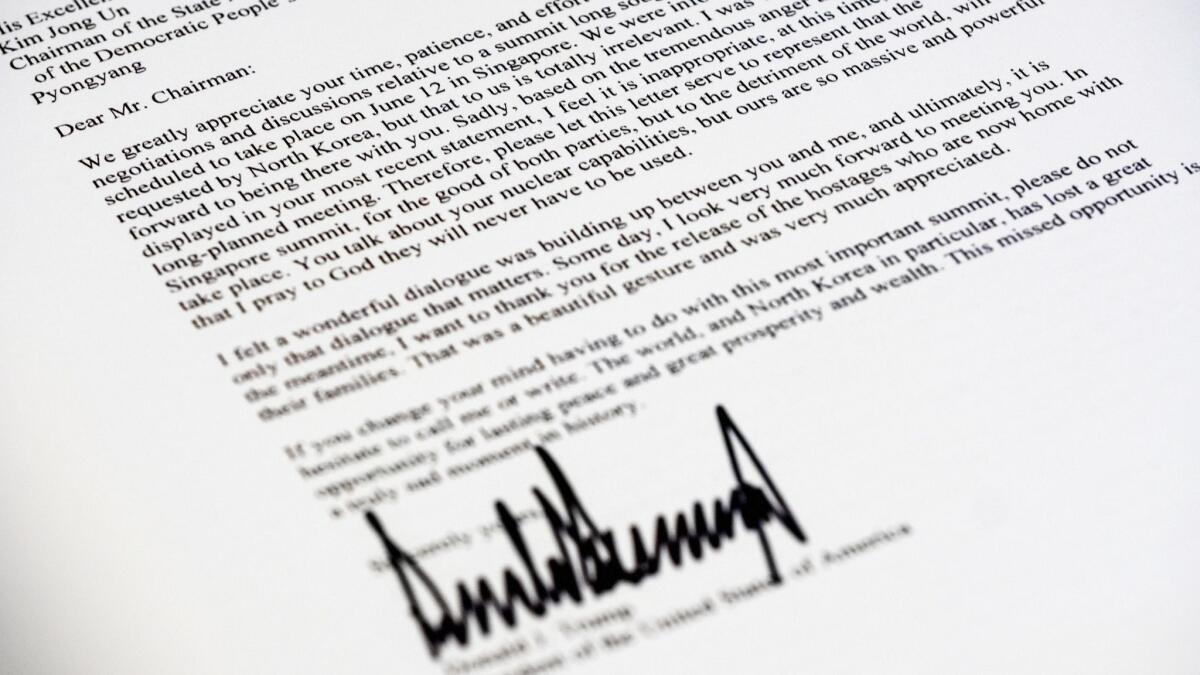 His Excellen
Kim Jong Un
Chairman of the State
of the Democratic People's
Pyongyang
Dear Mr. Chairman:
We greatly appreciate your time, patience, and effor
negotiations and discussions relative to a summit long
scheduled to take place on June 12 in Singapore. We were
requested by North Korea, but that to us is totally irrelevant. I was
forward to being there with you. Sadly, based on the tremendous anger
displayed in your most recent statement, I feel it is inappropriate, at this time,
long-planned meeting. Therefore, please let this letter serve to represent that the
Singapore summit, for the good of both parties, but to the detriment of the world, will
take place. You talk about your nuclear capabilities, but ours are so massive and powerful
that I pray to God they will never have to be used.
I felt a wonderful dialogue was building up between you and me, and ultimately, it is
only that dialogue that matters. Some day, I look very much forward to meeting you. In
the meantime, I want to thank you for the release of the hostages who are now home with
their families. That was a beautiful gesture and was very much appreciated.
If you change your mind having to do with this most important summit, please do not
hesitate to call me or write. The world, and North Korea in particular, has lost a great
opportunity for lasting peace and great prosperity and wealth. This missed opportunity is
a truly sad moment in history.
Donald J. Trump
of the United States of America